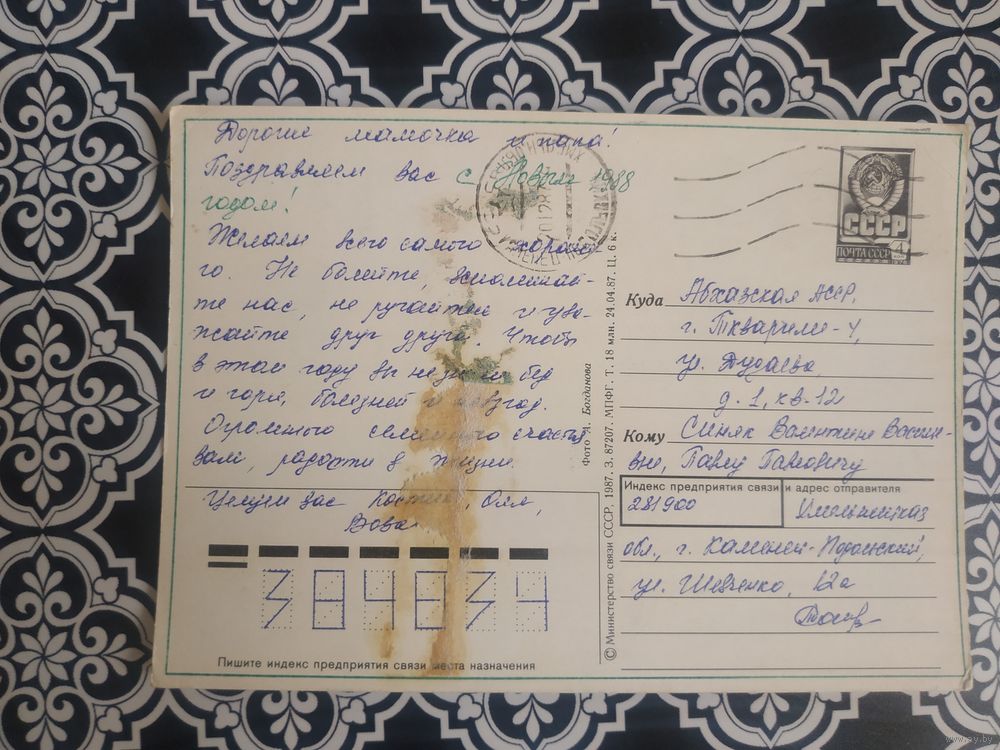 Дорогие мамочка и папа!
Поздравляем вас с Новым 1988
годом!
Желаем всего самого хороше-
го. Не болейте, вспоминай-
те нас, не ругайтесь и ува-
жайте друг друга. Чтобы
в этом году вы не знали бед
и горя, болезней и невзгод.
Огромного семейного счастья
вам, радости в жизни.
Целуем вас Костик, Оля,
Вова
384034
Пишите индекс предприятия связи места назначения
Фото А. Богданова
© Министерство связи СССР, 1987. З. 87207. МПФГ. Т. 18 млн. 24.04.87. Ц. 6 к.
СССР
ПОЧТА СССР
Куда Абхазская АССР,
г. Ткварчели-4,
ул.
д. 1, кв. 12
Кому Синяк Валентине Василь-
евне, Павлу Павловичу
Индекс предприятия связи и адрес отправителя
281900 Хмельницкая
обл., г. Каменец-Подольский,
ул. Шевченко, 12а
www.ay.by